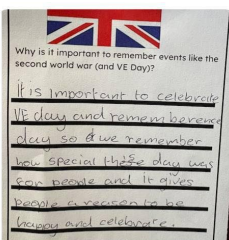 Why is it important to remember events like the
second world war (and VE Day)?
it is important to celebrate
VE day and remem berence
day so we remember
how special these day was
for people and it gives
people a reason to be
happy and celebrate.